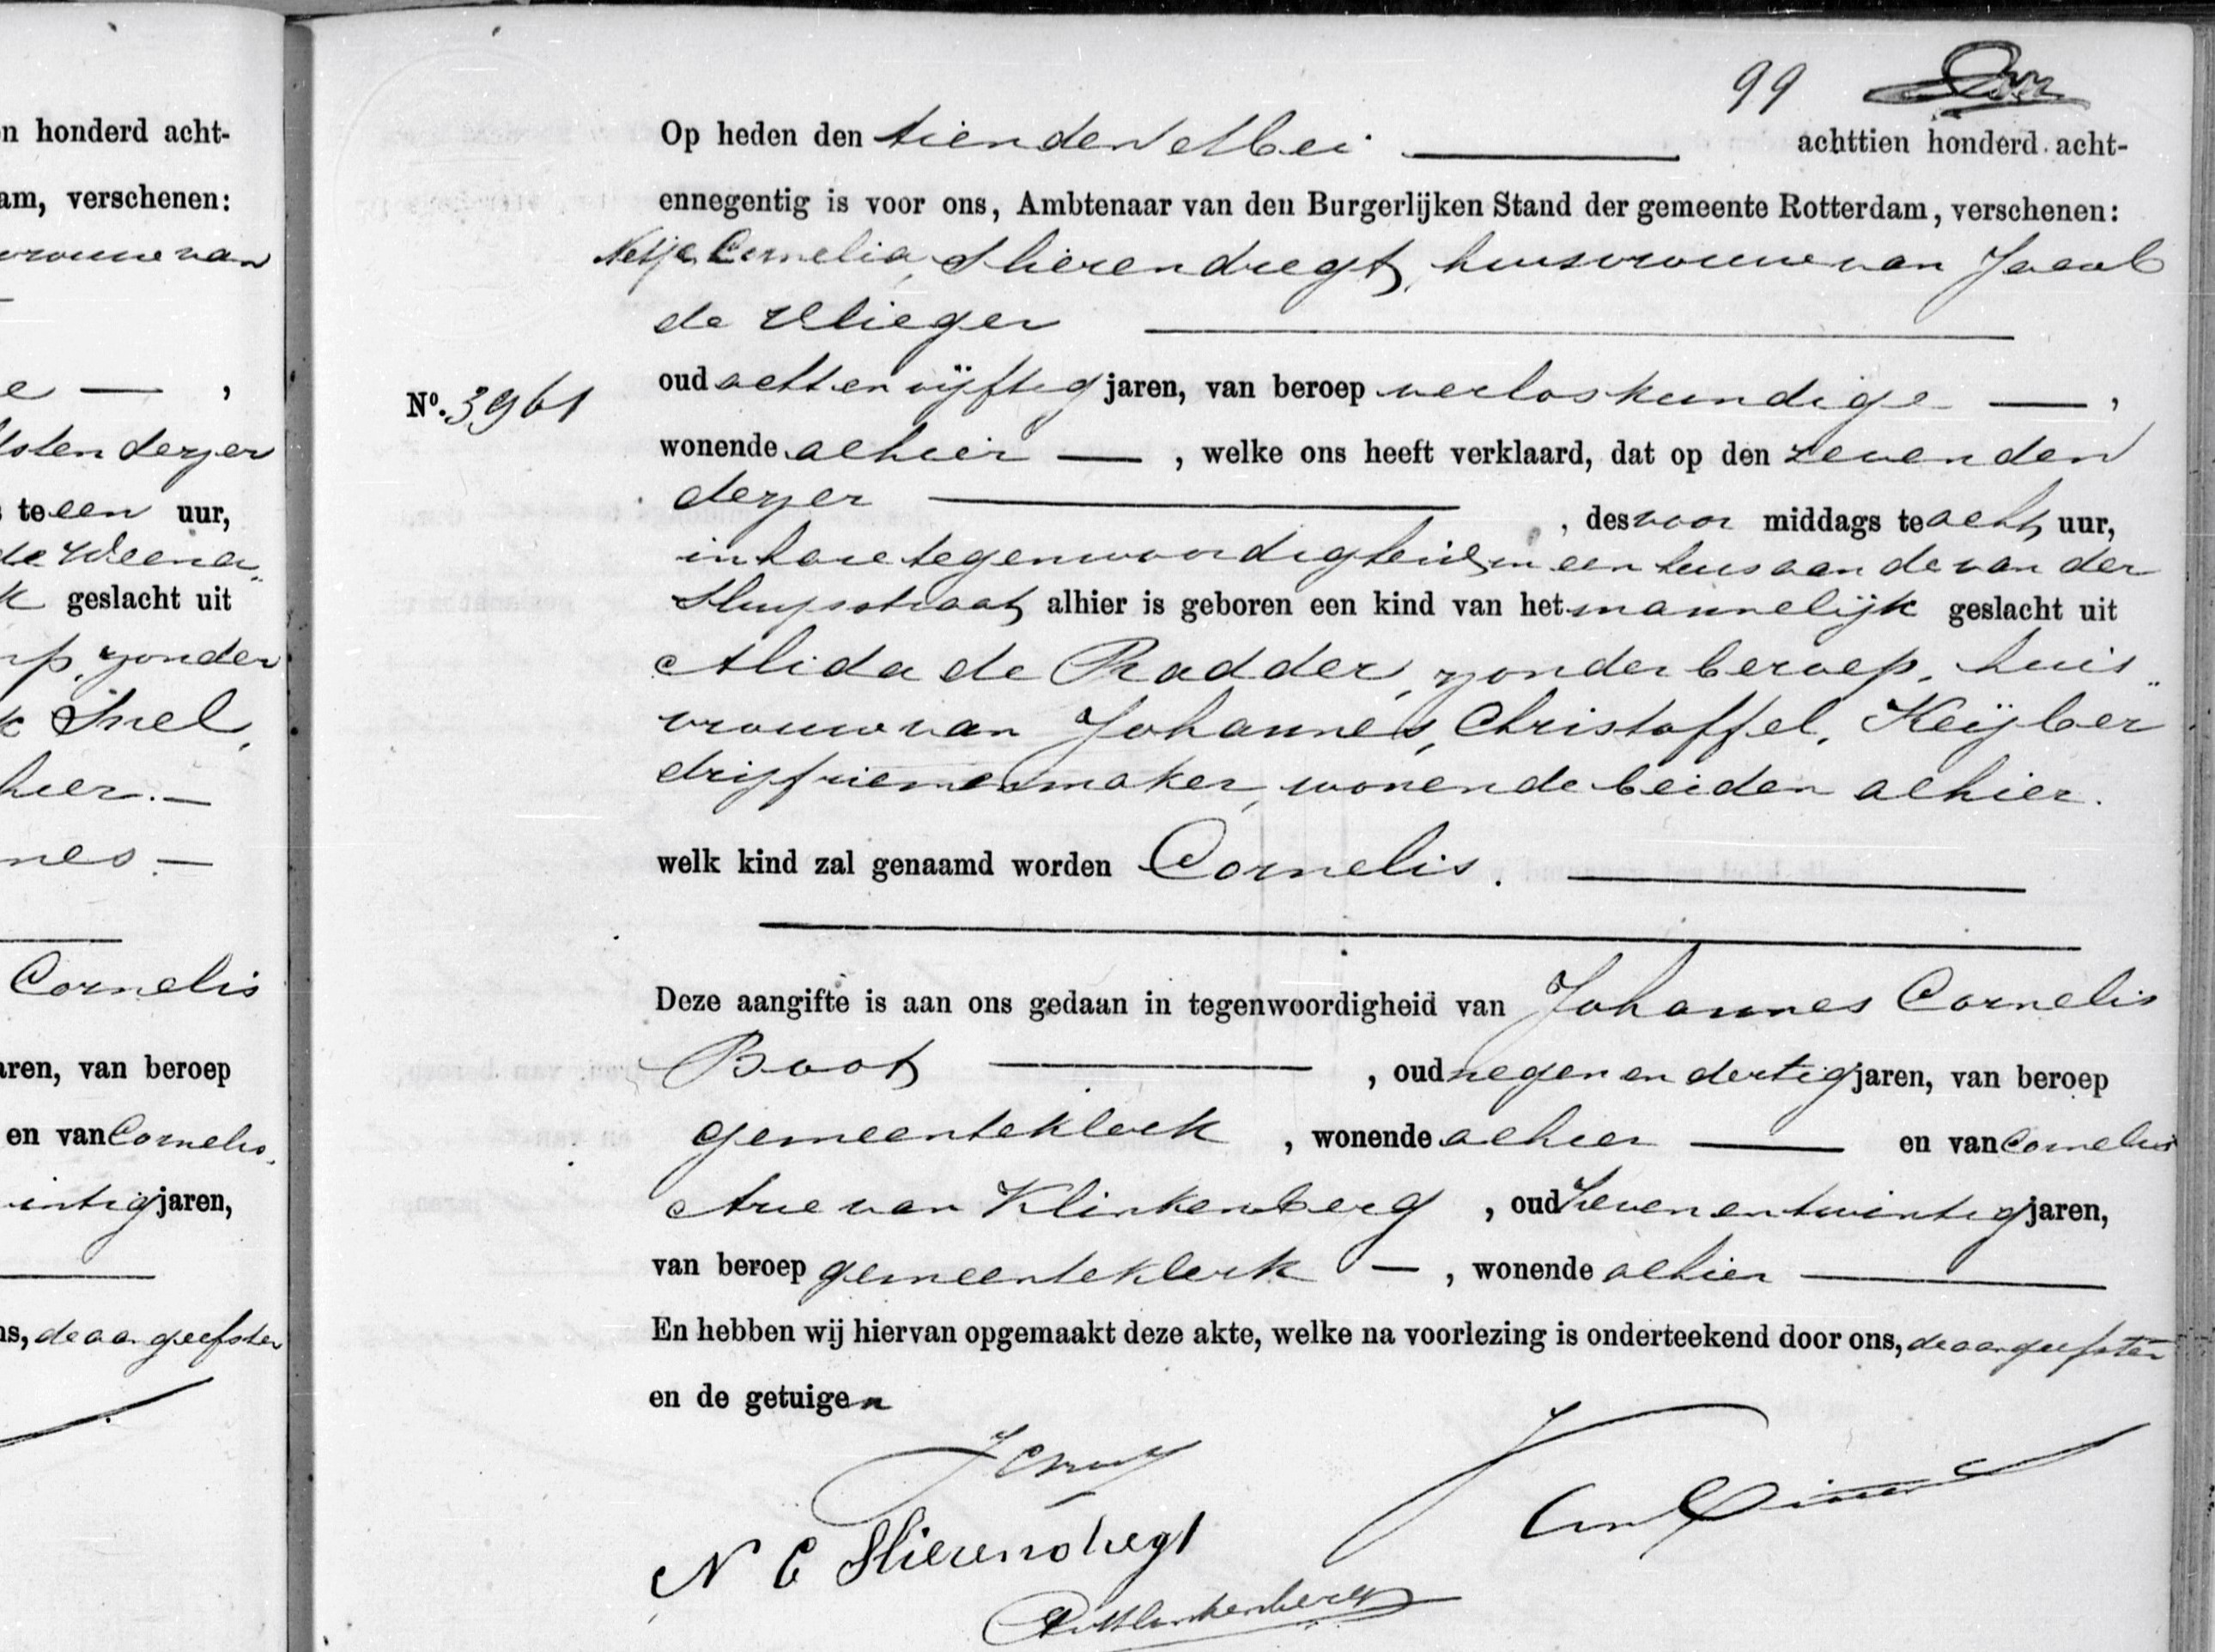 99
Op heden den tienden Mei achttien honderd acht-
ennegentig is voor ons, Ambtenaar van den Burgerlijken Stand der gemeente Rotterdam, verschenen:
Netje Cornelia Slierendregt, huisvrouw van Jacob
de Vlieger
No. 3961
oud acht en vijftig jaren, van beroep verloskundige —,
wonende alhier —, welke ons heeft verklaard, dat op den zevenden
dezer, des voor middags te acht uur,
in hare tegenwoordigheid in een huis aan de van der
Sluysstraat alhier is geboren een kind van het mannelijk geslacht uit
Alida de Radder, zonder beroep, huis„
vrouw van Johannes, Christoffel, Keijber
drijfriemenmaker, wonende beiden alhier.
welk kind zal genaamd worden Cornelis.
Deze aangifte is aan ons gedaan in tegenwoordigheid van Johannes Cornelis
Boot, oud negen en dertig jaren, van beroep
gemeenteklerk, wonende alhier — en van Cornelis
Arie van Klinkenberg, oud zeven en twintig jaren,
van beroep gemeenteklerk —, wonende alhier
En hebben wij hiervan opgemaakt deze akte, welke na voorlezing is onderteekend door ons, de aangeefster
en de getuigen
N C Slierendregt
n honderd acht-
am, verschenen:
vrouw van
e —,
dezer
s te een uur,
de Weena„
k geslacht uit
zonder
k Snel,
hier. —
nes —
Cornelis
aren, van beroep
en van Cornelis
intig jaren,
ns, de aangeefster